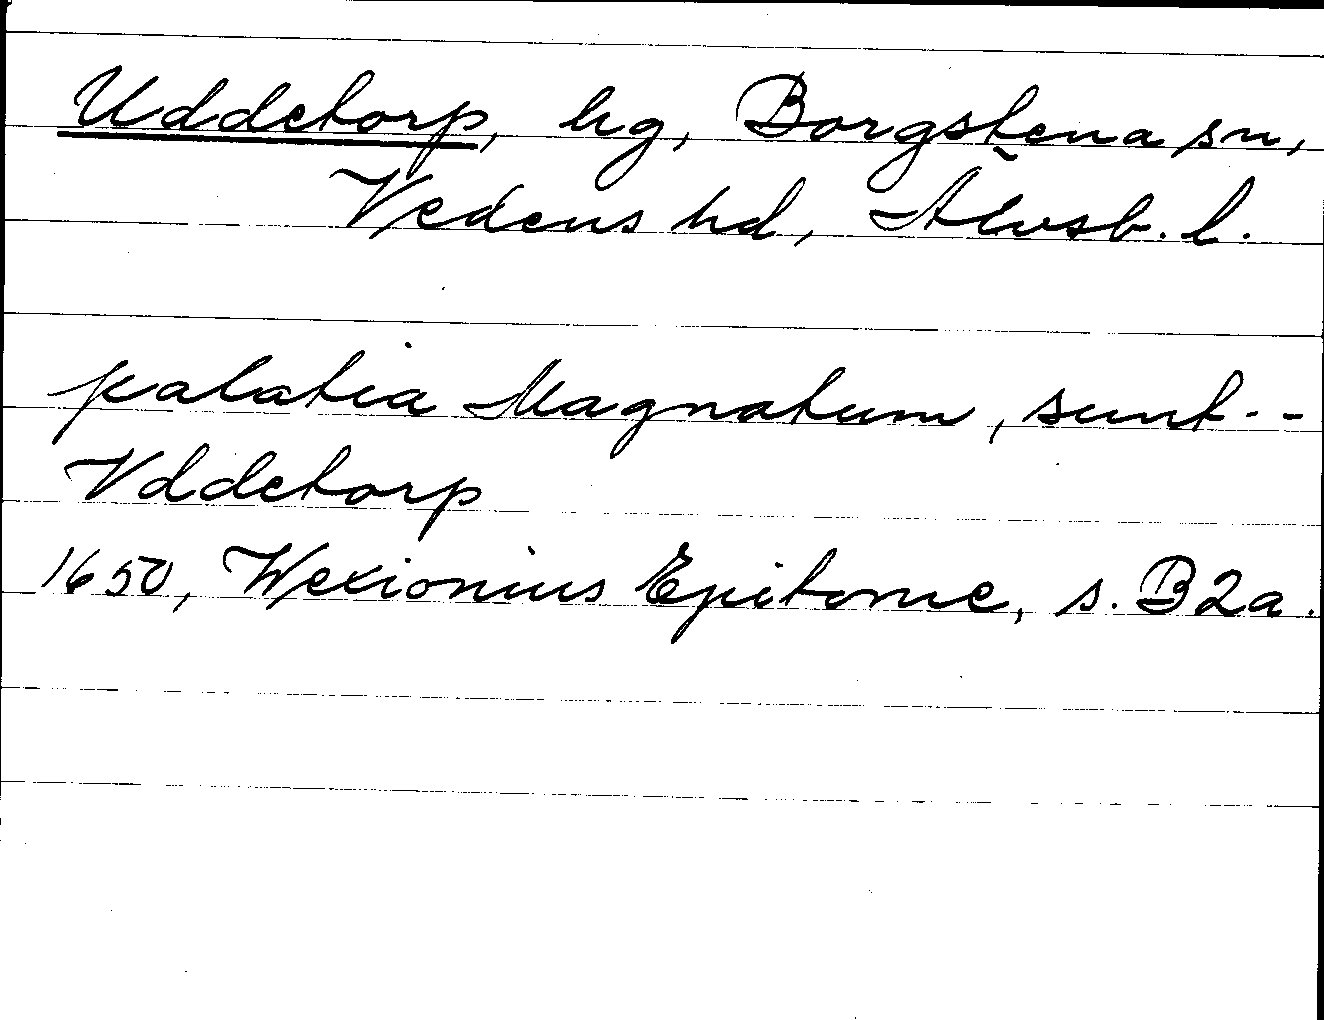 Uddetorp, hg, Borgstena sn,
Vedens hd, Älvsb. l.
palatia Magnatum, sunt --
Vddetorp
1650, Wexionius Epitome, s. B2a.